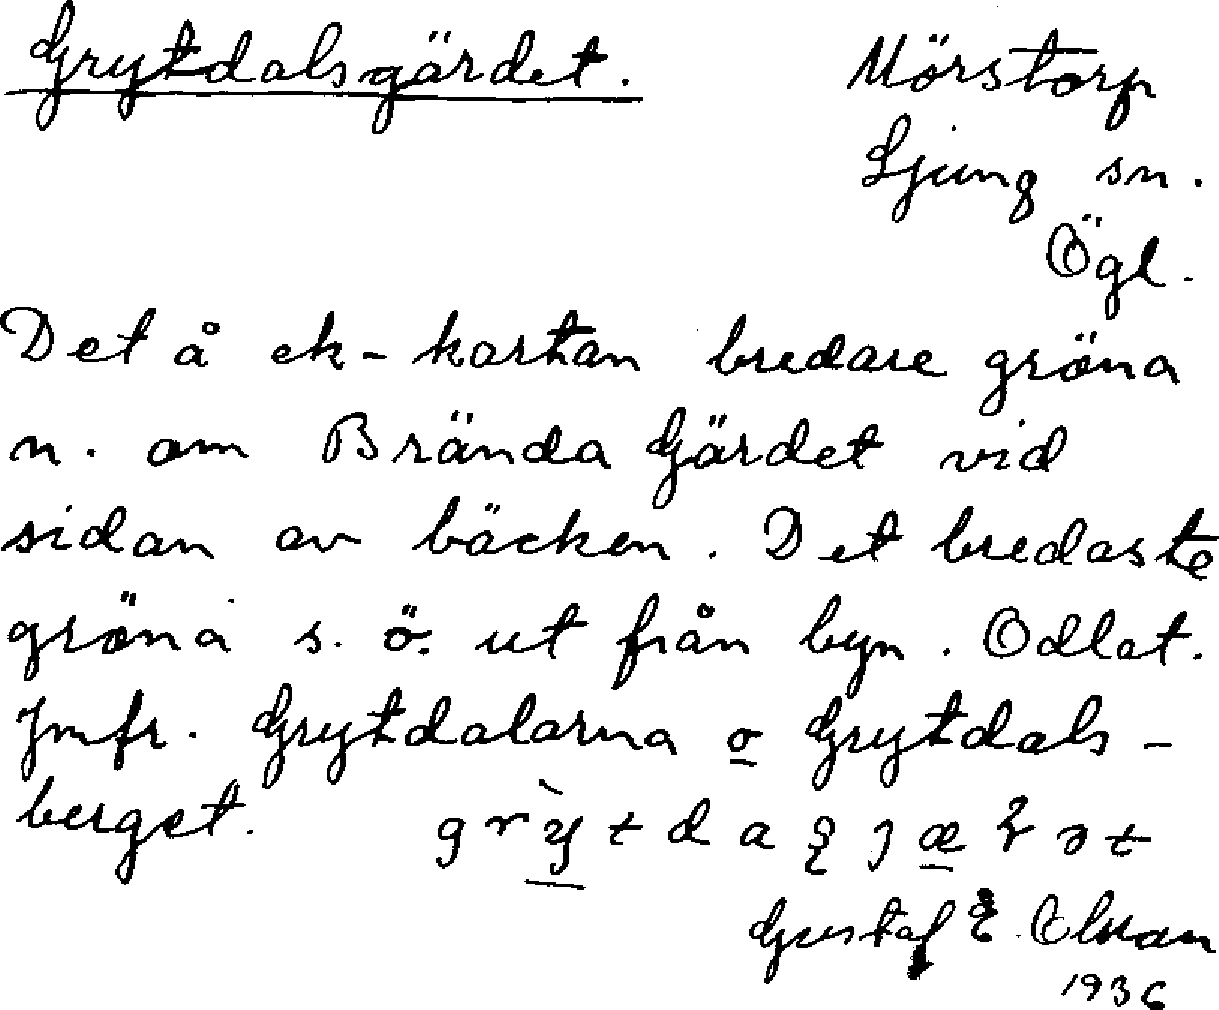 Grytdalsgärdet.
Mörstorp
Ljung sn.
Ögl.
Det å ek-kartan bredare gröna
n. om Brända Gärdet vid
sidan av bäcken. Det bredaste
gröna s. ö. ut från byn. Odlat.
Jmfr. Grytdalarna o Grytdals-
berget.
Gustaf E. Olsson
1936